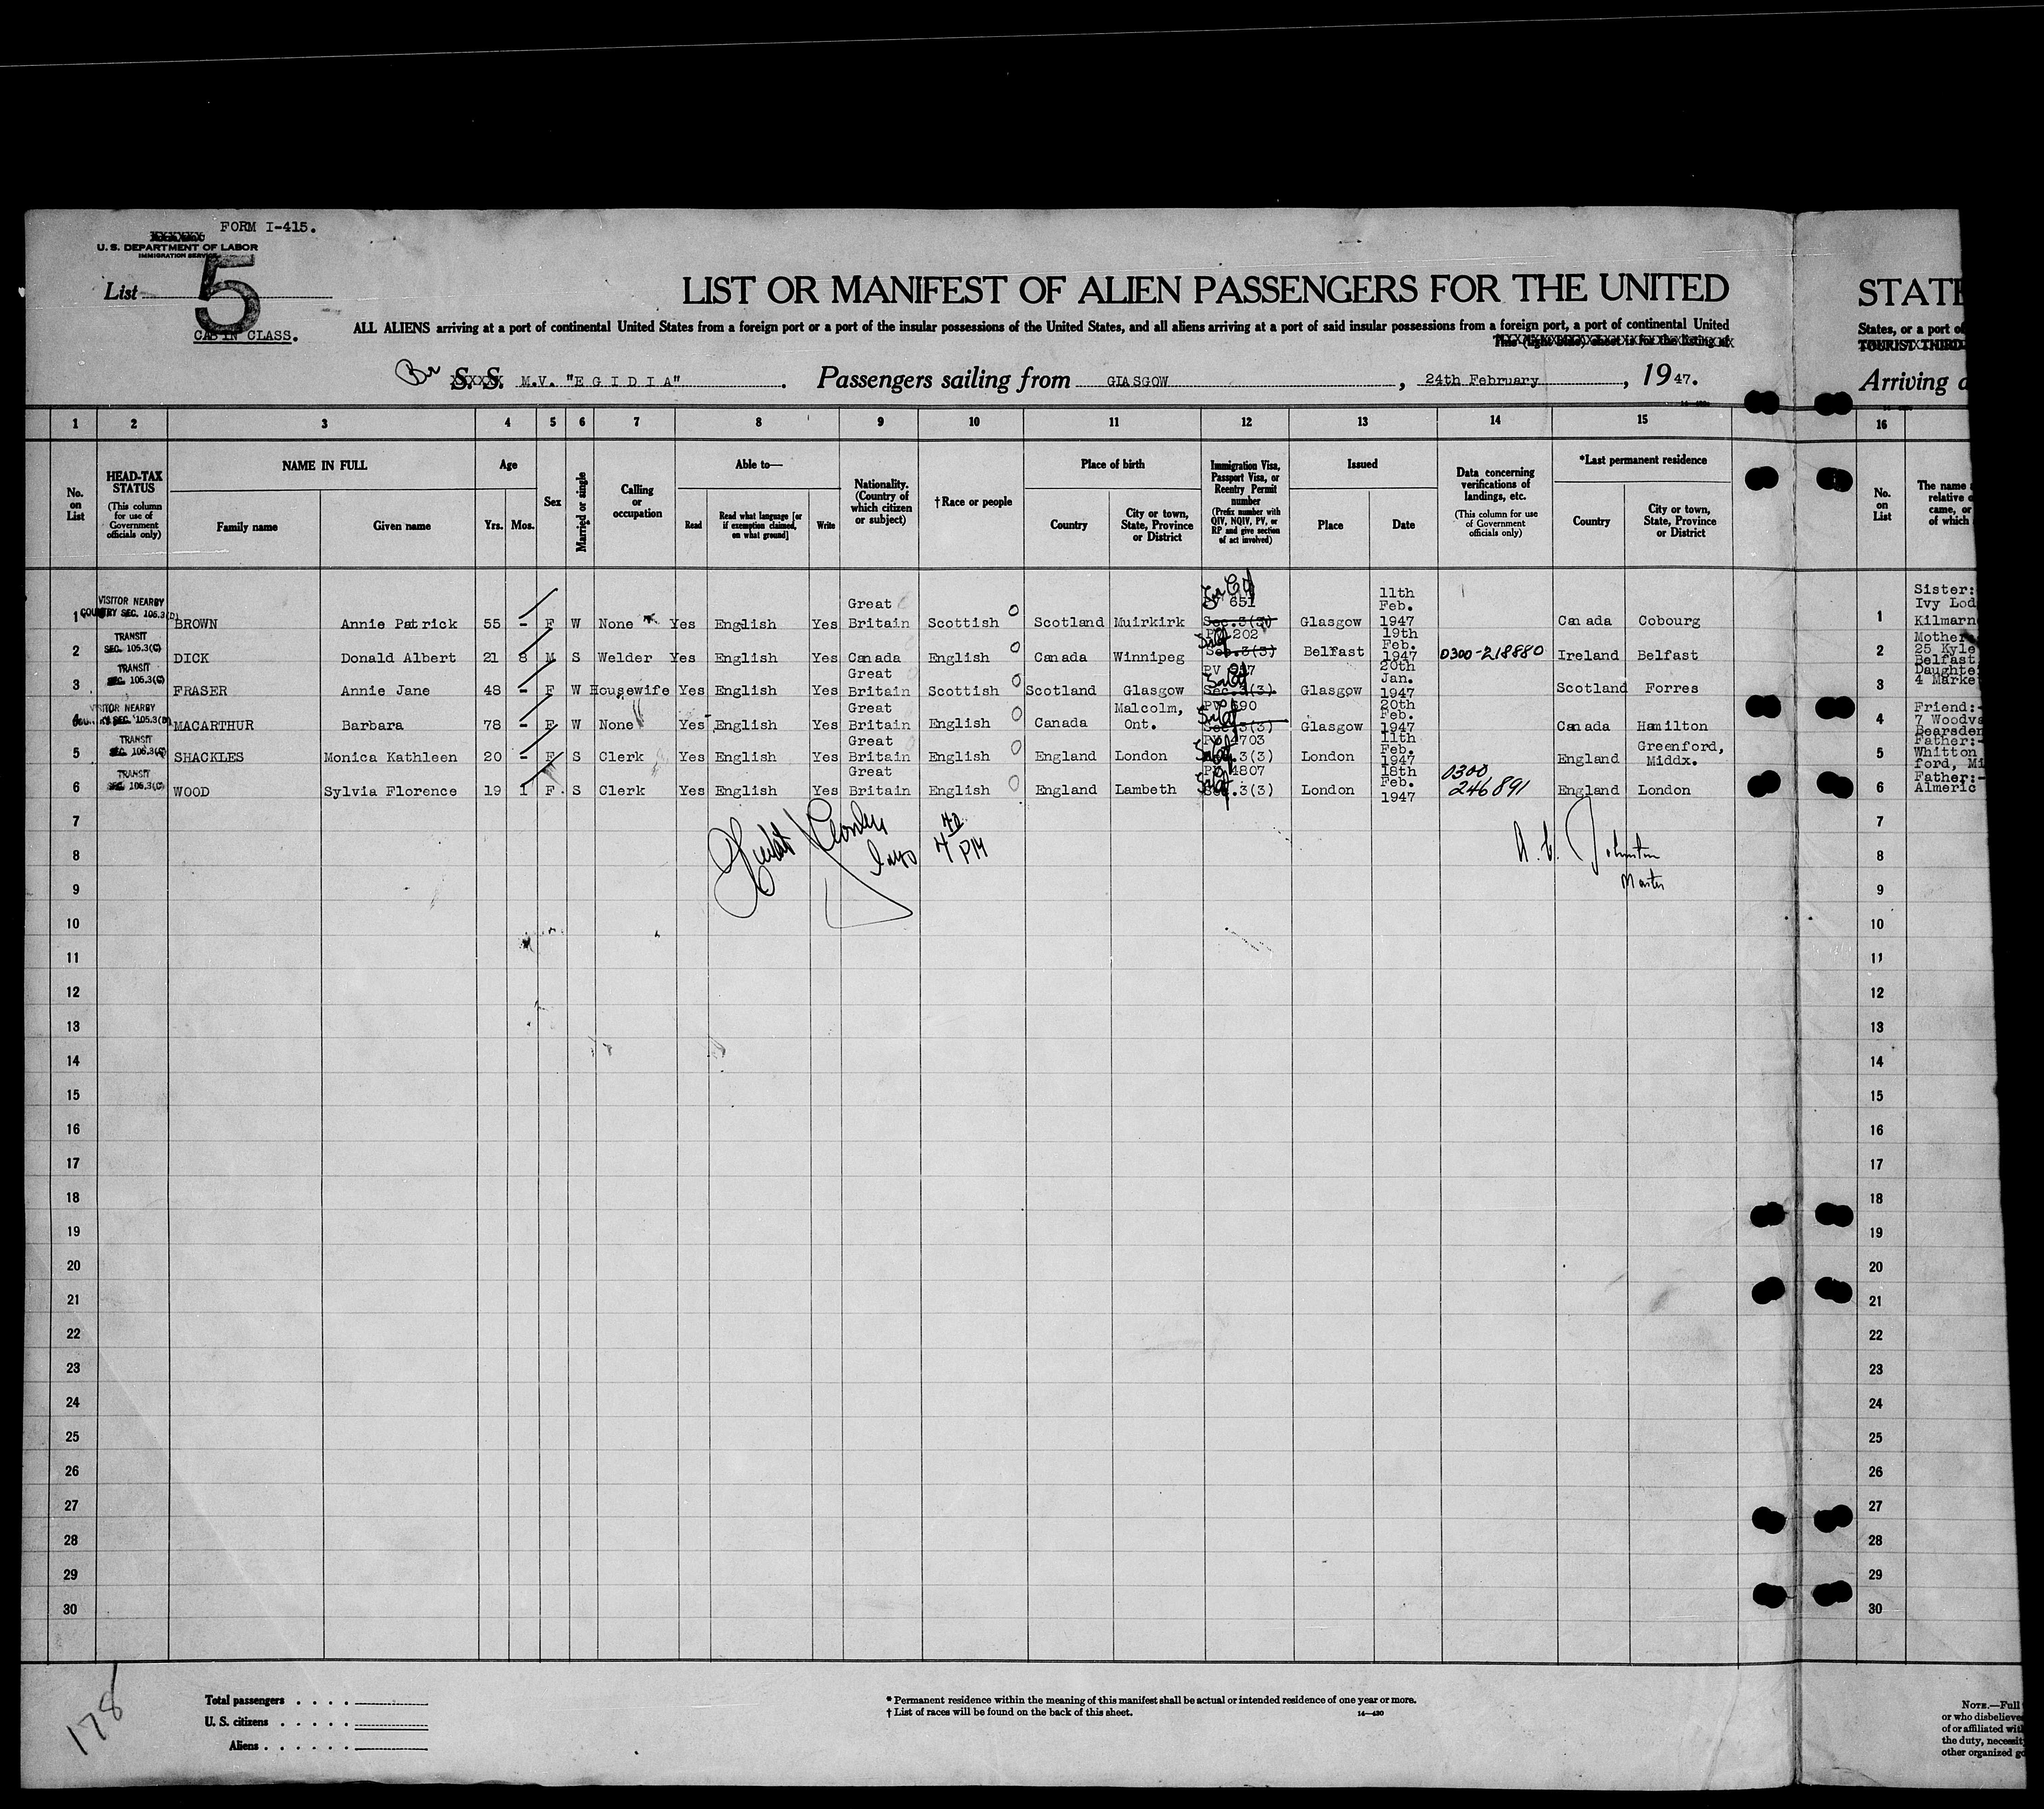 FORM I-415.
U. S. DEPARTMENT OF LABOR
IMMIGRATION SERVICE
List 5
CABIN CLASS.
LIST OR MANIFEST OF ALIEN PASSENGERS FOR THE UNITED
STATE
ALL ALIENS arriving at a port of continental United States from a foreign port or a port of the insular possessions of the United States, and all aliens arriving at a port of said insular possessions from a foreign port, a port of continental United
States, or a port of
This (light blue) sheet is for the listing of
TOURIST THIRD
S. S. M.V. "E G I D I A" . Passengers sailing from GLASGOW , 24th February , 19 47.
Arriving a
1 2 3 4 5 6 7 8 9 10 11 12 13 14 15 16
No. on List
HEAD-TAX STATUS (This column for use of Government officials only)
NAME IN FULL
Family name Given name
Age
Yrs. Mos.
Sex
Married or single
Calling or occupation
Able to—
Read Read what language [or if exemption claimed, on what ground] Write
Nationality. (Country of which citizen or subject)
† Race or people
Place of birth
Country City or town, State, Province or District
Immigration Visa, Passport Visa, or Reentry Permit number (Prefix number with QIV, NQIV, PV, or RP and give section of act involved)
Issued
Place Date
Data concerning verifications of landings, etc. (This column for use of Government officials only)
*Last permanent residence
Country City or town, State, Province or District
No. on List
The name a
relative o
came, or
of which
1 VISITOR NEARBY COUNTRY SEC. 105.3(D) BROWN Annie Patrick 55 - F W None Yes English Yes Great Britain Scottish Scotland Muirkirk 651 Sec.3(3) Glasgow 11th Feb. 1947 Canada Cobourg 1 Sister: Ivy Lod Kilmarn
2 TRANSIT SEC. 105.3(C) DICK Donald Albert 21 8 M S Welder Yes English Yes Canada English Canada Winnipeg PV 202 Sec.3(3) Belfast 19th Feb. 1947 0300-218880 Ireland Belfast 2 Mother 25 Kyle Belfast
3 TRANSIT SEC. 105.3(C) FRASER Annie Jane 48 - F W Housewife Yes English Yes Great Britain Scottish Scotland Glasgow PV Sec.3(3) Glasgow 20th Jan. 1947 Scotland Forres 3 Daughte 4 Marke
4 VISITOR NEARBY COUNTRY SEC. 105.3(D) MACARTHUR Barbara 78 - F W None Yes English Yes Great Britain English Canada Malcolm, Ont. PV 690 Sec.3(3) Glasgow 20th Feb. 1947 Canada Hamilton 4 Friend:- 7 Woodva Bearsden
5 TRANSIT SEC. 105.3(C) SHACKLES Monica Kathleen 20 - F S Clerk Yes English Yes Great Britain English England London 703 Sec.3(3) London 11th Feb. 1947 England Greenford, Middx. 5 Father:- Whitton ford, Mi
6 TRANSIT SEC. 105.3(C) WOOD Sylvia Florence 19 1 F S Clerk Yes English Yes Great Britain English England Lambeth PV 4807 Sec.3(3) London 18th Feb. 1947 0300 246891 England London 6 Father:- Almeric
7 7
8 4 PM A. C. Johnston 8
9 Master 9
10 10
11 11
12 12
13 13
14 14
15 15
16 16
17 17
18 18
19 19
20 20
21 21
22 22
23 23
24 24
25 25
26 26
27 27
28 28
29 29
30 30
178
Total passengers . . . .
U. S. citizens . . . . .
Aliens . . . . . .
* Permanent residence within the meaning of this manifest shall be actual or intended residence of one year or more.
† List of races will be found on the back of this sheet.
14—430
NOTE.—Full
or who disbelieve
of or affiliated with
the duty, necessity
other organized go